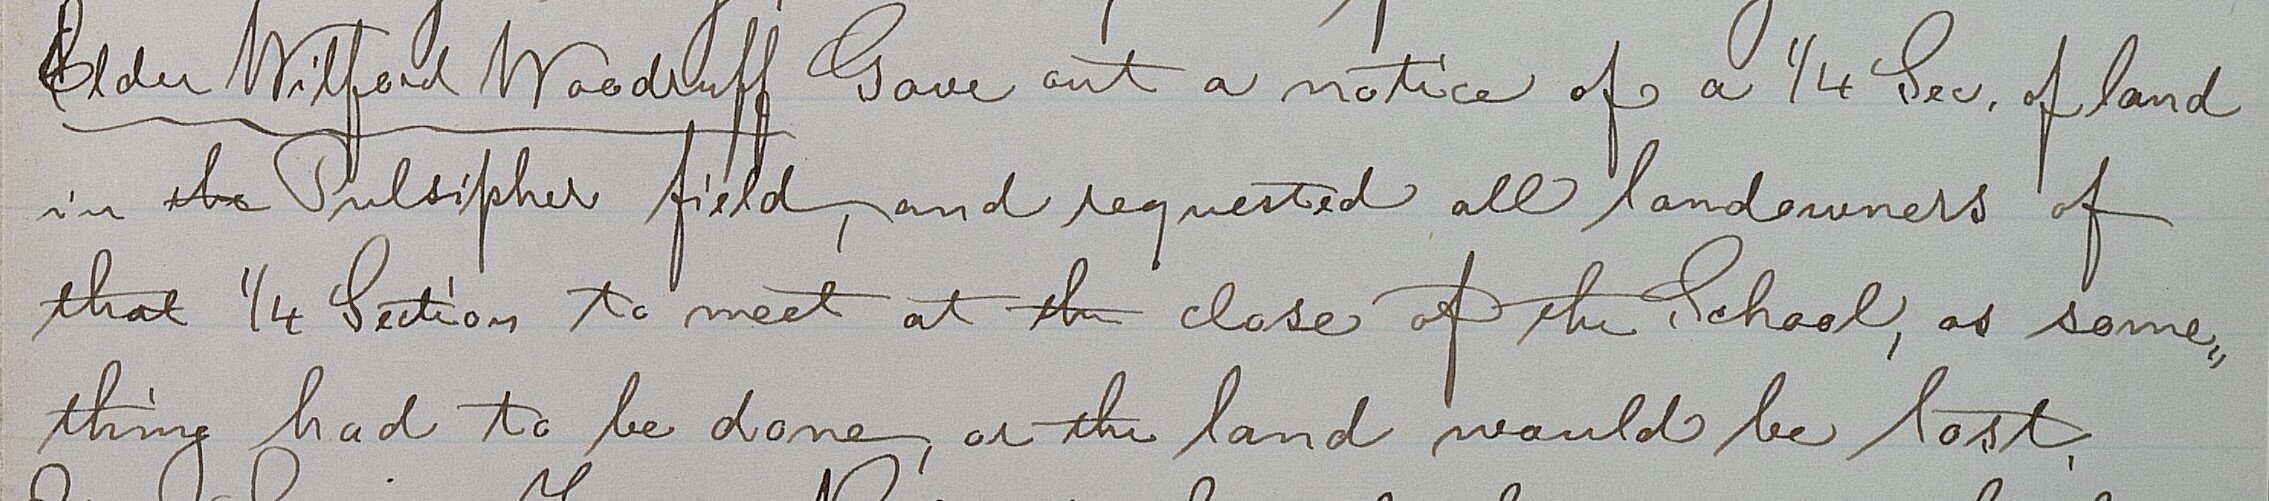 Elder Wilford Woodruff Gave out a notice of a 1/4 Sec. of land
in the Pulsipher field, and requested all landowners of
that 1/4 Section to meet at the close of the School, as some„
thing had to be done, or the land would be lost.